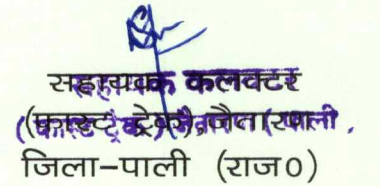 सहायक कलक्टर
(फास्ट ट्रेक) जैतारण (पाली)
जिला-पाली (राज0)